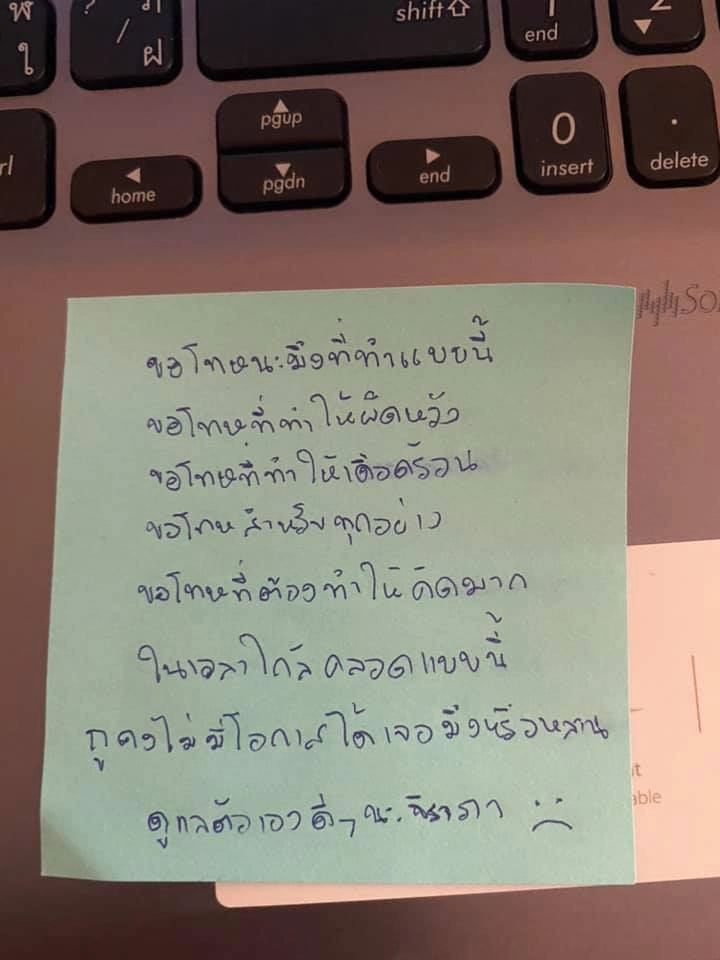 พ
ใ
? ภ
/ ฝ
shift
1
end
2
rl
home
pgup
pgdn
end
0
insert
.
delete
So
ขอโทษนะมึงที่ทำแบบนี้
ขอโทษที่ทำให้ผิดหวัง
ขอโทษที่ทำให้เดือดร้อน
ขอโทษสำหรับทุกอย่าง
ขอโทษที่ต้องทำให้คิดมาก
ในเวลาใกล้คลอดแบบนี้
กูคงไม่มีโอกาสได้เจอมึงหรือหลาน
ดูแลตัวเองดีๆนะ
able